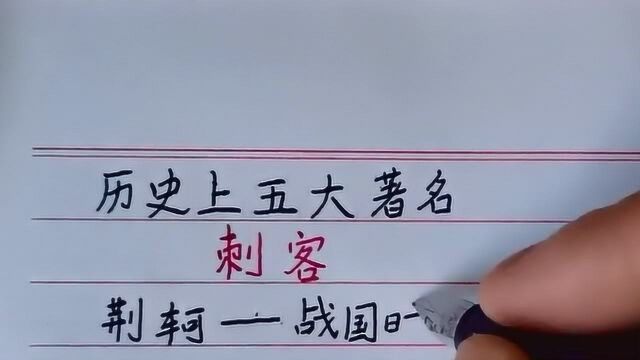 历史上五大著名
刺客
荆轲一战国